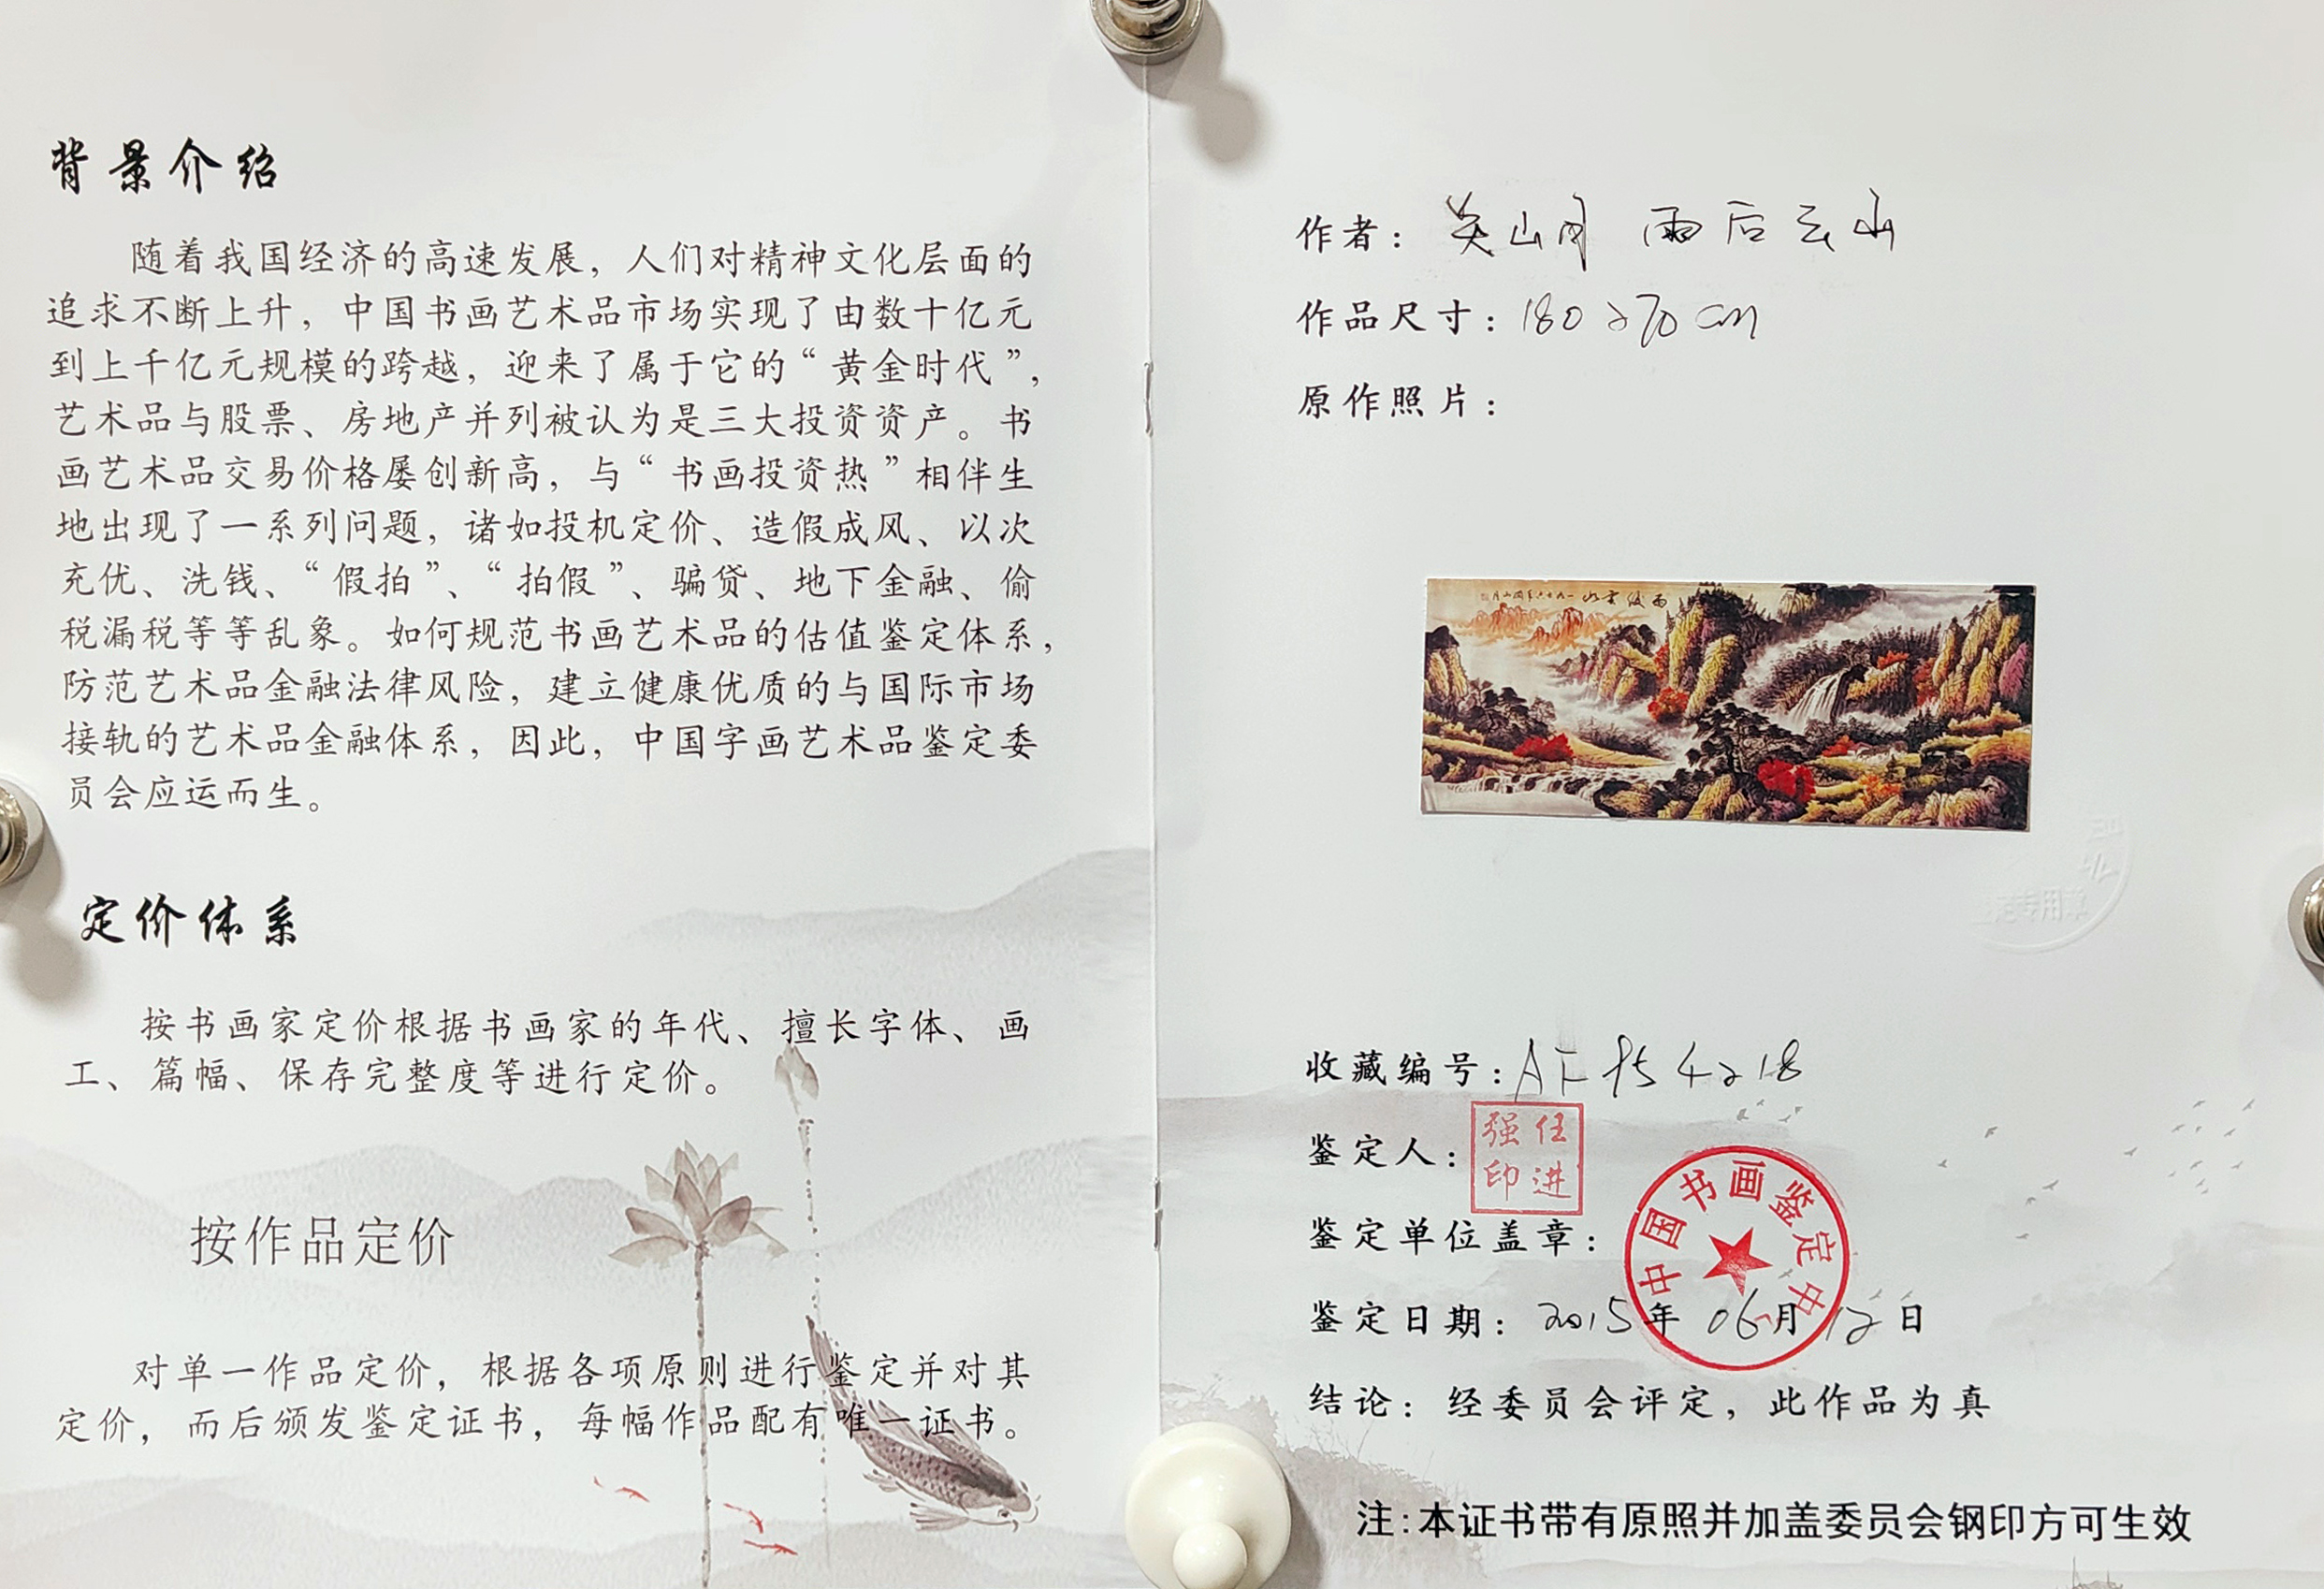 背景介绍
随着我国经济的高速发展，人们对精神文化层面的
追求不断上升，中国书画艺术品市场实现了由数十亿元
到上千亿元规模的跨越，迎来了属于它的“黄金时代”，
艺术品与股票、房地产并列被认为是三大投资资产。书
画艺术品交易价格屡创新高，与“书画投资热”相伴生
地出现了一系列问题，诸如投机定价、造假成风、以次
充优、洗钱、“假拍”、“拍假”、骗贷、地下金融、偷
税漏税等等乱象。如何规范书画艺术品的估值鉴定体系，
防范艺术品金融法律风险，建立健康优质的与国际市场
接轨的艺术品金融体系，因此，中国字画艺术品鉴定委
员会应运而生。
定价体系
按书画家定价根据书画家的年代、擅长字体、画
工、篇幅、保存完整度等进行定价。
按作品定价
对单一作品定价，根据各项原则进行鉴定并对其
定价，而后颁发鉴定证书，每幅作品配有唯一证书。
作者：关山月 雨后云山
作品尺寸：180×70cm
原作照片：
雨後雲山
专用章
收藏编号：
鉴定人：任进强印
鉴定单位盖章：中国书画鉴定中
鉴定日期：2015年06月12日
结论：经委员会评定，此作品为真
注:本证书带有原照并加盖委员会钢印方可生效